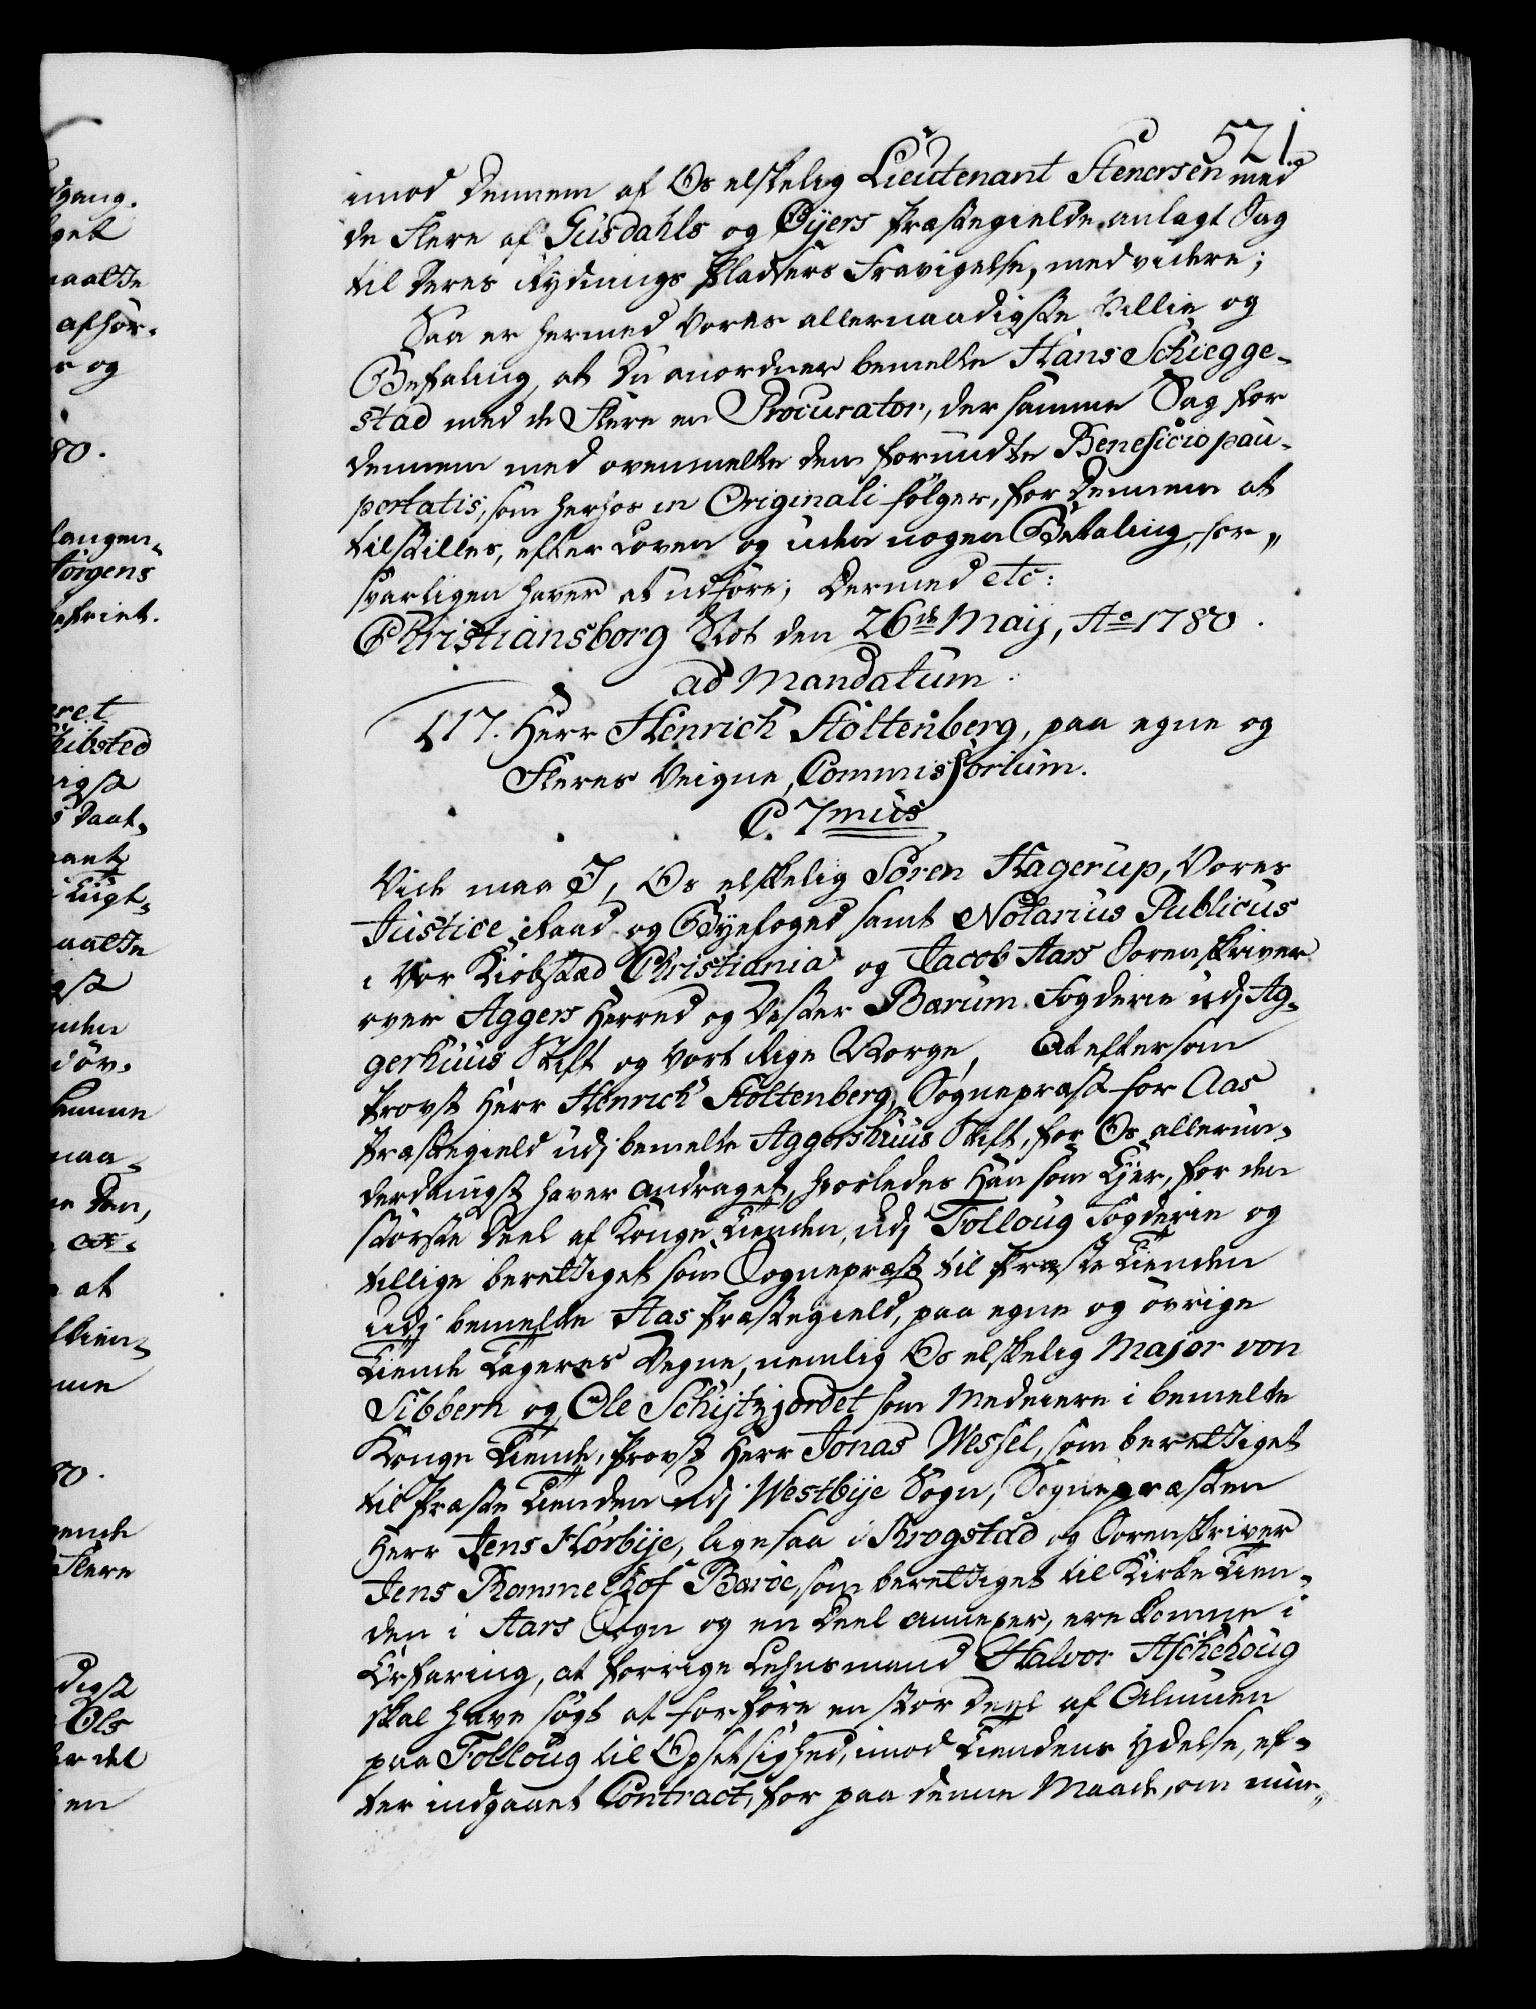 521
imod dennem af Os elskelig Lieutenant Stenersen med
de Flere af Gusdahls og Öijers Præstegielde anlagt Sag
til deres Rydnings Pladsers Fravigelse, med videre;
Saa er hermed Vores allernaadigste Villie og
Befaling, at Du anordner bemelte Hans Schiegge-
stad med de Flere en Procurator, der samme Sag for
dennem med ovenmelte dem forundte Beneficio pau-
pertatis, som herhos in Originali fölger, for dennem at
tilstilles, efter Loven og uden nogen Betaling, for-
svarligen haver at udföre; Dermed etc:
Christiansborg Slot den 26de Maij, Ao 1780.
ad Mandatum.
117. Herr Henrich Stoltenberg, paa egne og
Fleres Veigne, Commissorium.
C. 7mus
Vide maa I, Os elskelig Sören Hagerup, Vores
Justice Raad og Byefoged samt Notarius Publicus
i Vor Kiöbstad Christiania og Jacob Aars Sorenskriver
over Aggers Herred og Vester Barum Fogderie udj Ag-
gerhuus Stift og Vort Rige Norge, At eftersom
Provst Herr Henrich Stoltenberg, Sognepræst for Aas
Præstegield udj bemelte Aggershuus Stift, for Os allerun-
derdanigst haver andraget, hvorledes han som Ejer, for den
störste Deel af Konge Tienden, udj Folloug Fogderie og
tillige berettiget som Sognepræst til Præste Tienden
udj bemelte Aas Præstegield, paa egne og övrige
Tiende Tageres Vegne, nemlig Os elskelig Major von
Sibbern og Ole Schijtzjordet som Medeiere i bemelte
Konge Tiende, Provst Herr Jonas Wessel, som berettiget
til Præste Tienden udj Westbije Sogn, Sognepræsten
Herr Jens Hörbije, ligesaa i Krogstad og Sorenskriver
Jens Rommelhof Baröe, som berettiget til Kirke Tien-
den i Aars Sogn og en Deel Annexer, ere komne i
Erfaring, at forrige Lehnsmand Halvor Aschehoug
skal have sögt at forföre en stor Deel af Almuen
paa Folloug til Opsetsighed, imod Tiendens Ydelse, ef-
ter indgaaet Contract, for paa denne Maade, om mu-